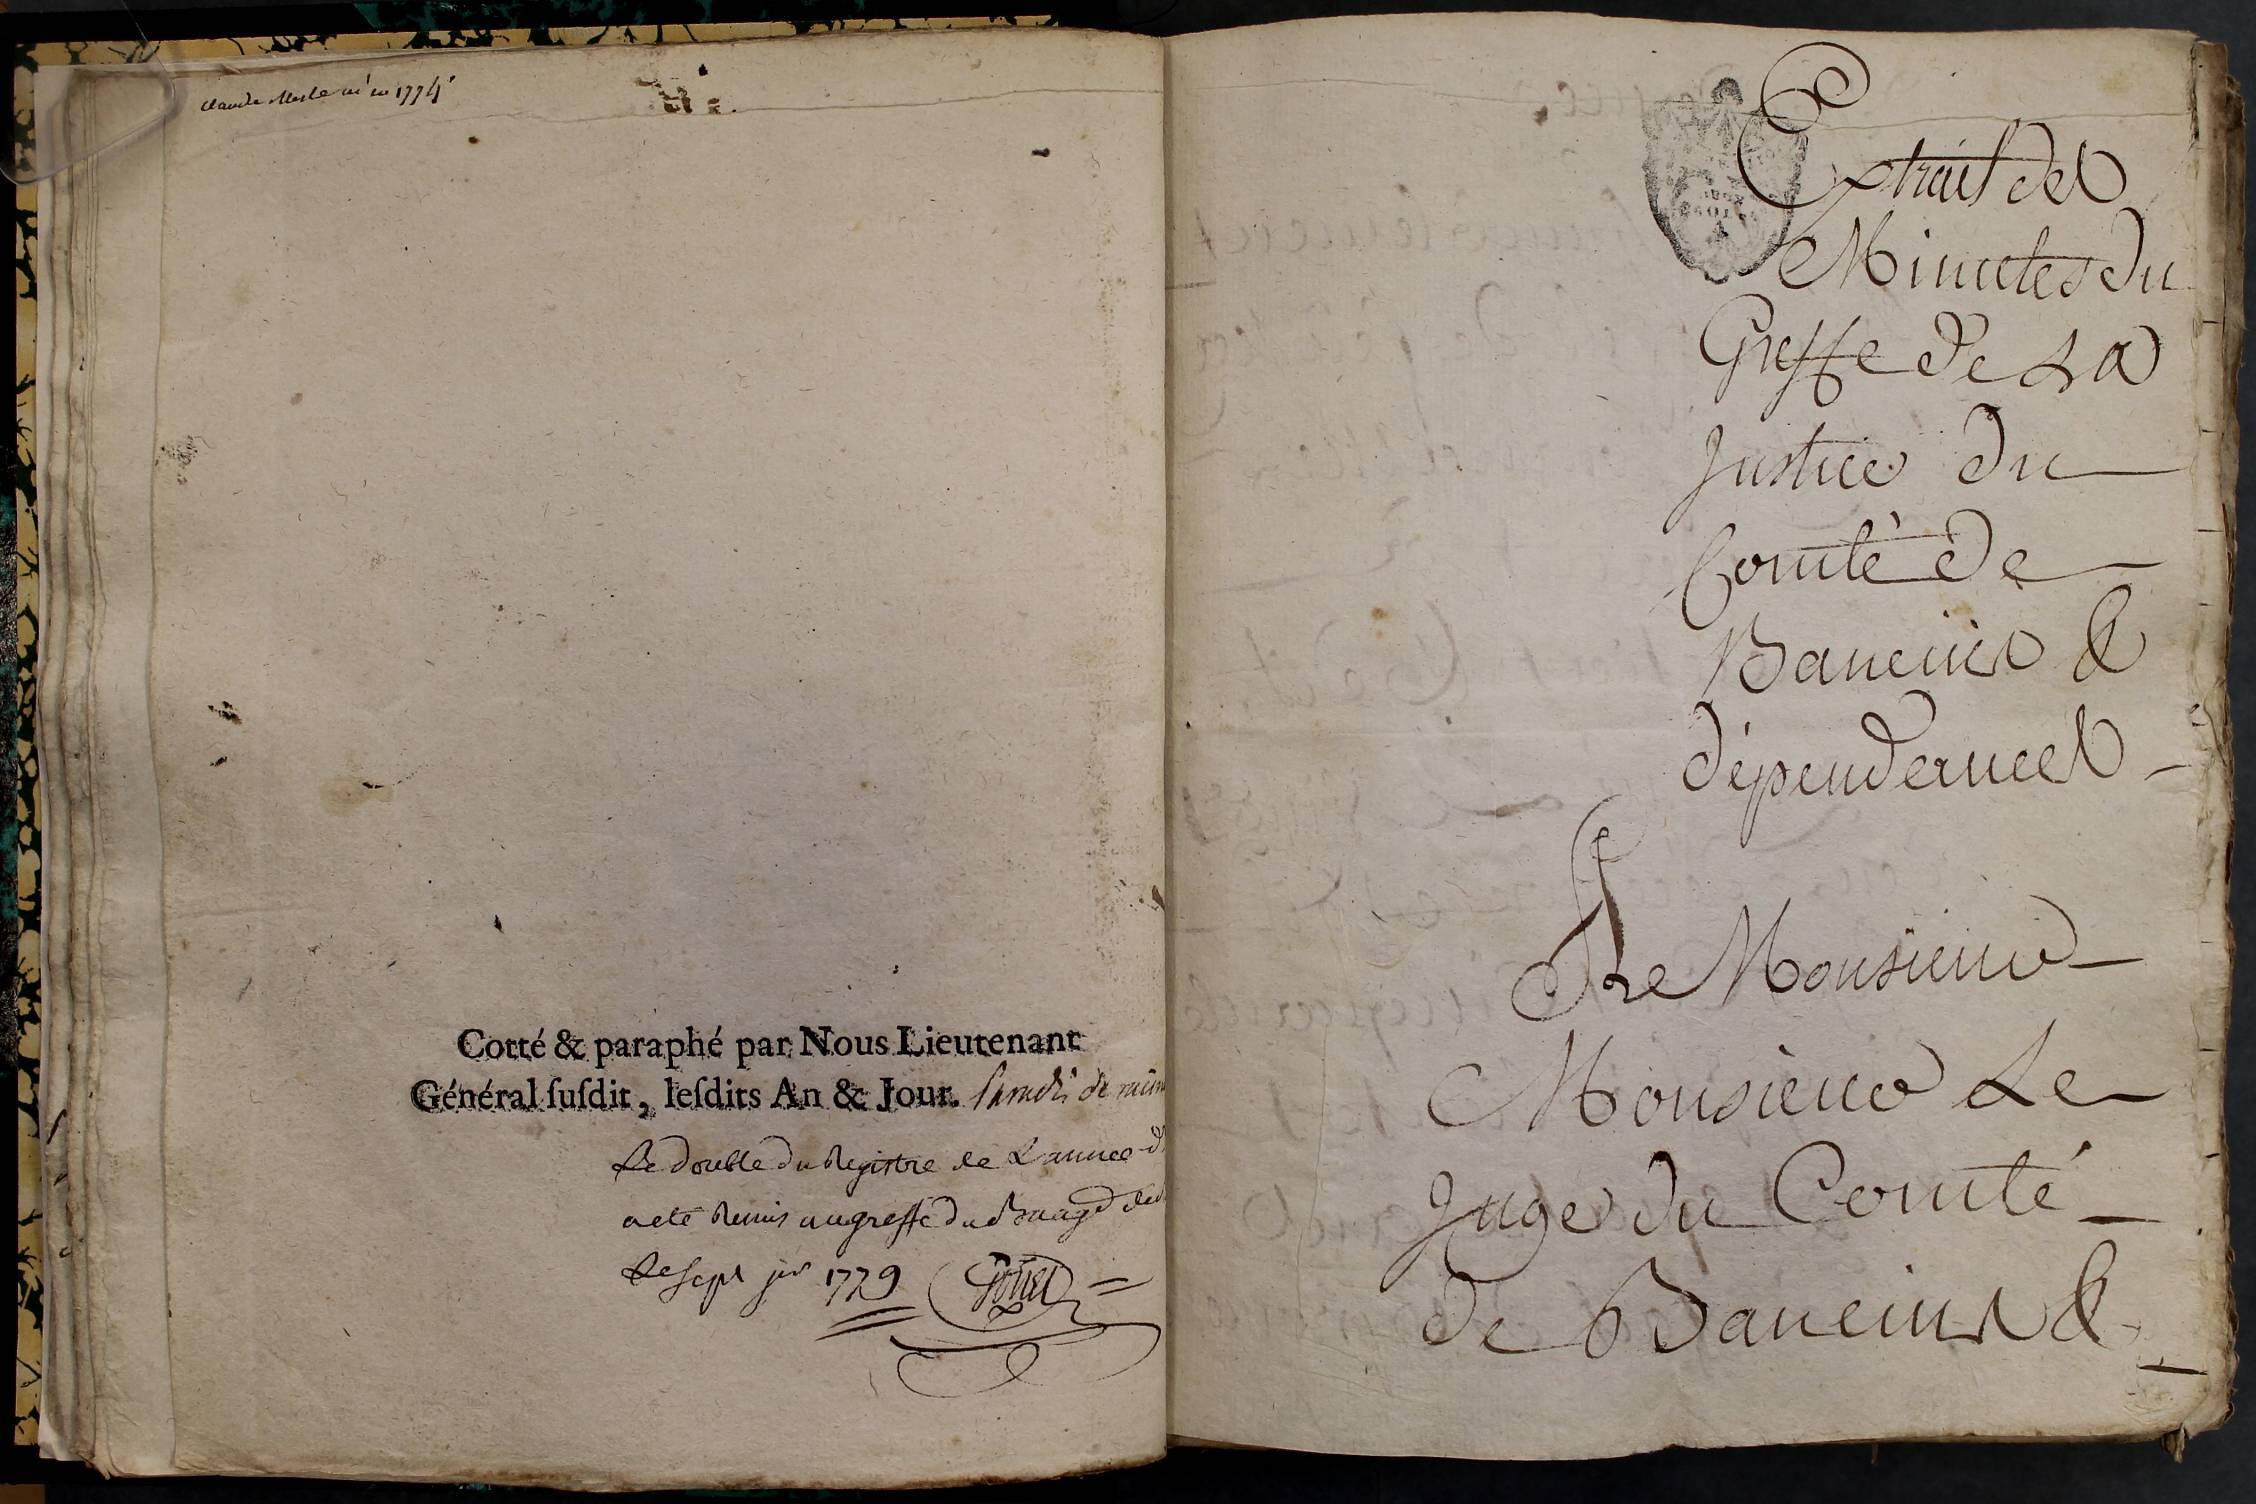 Claude Merle né en 1774
Cotté & paraphé par Nous Lieutenant
Général ſuſdit, leſdits An & Jour.
Le double du Registre de L'annee
a eté Remis au greffe du
Le sept jer 1779
Extrait des
Minutes du
Greffe de La
Justice du
Comté de
Baneins &
dépendances
A
Monsieur
Monsieur Le
Juge du Comté
de Baneins &